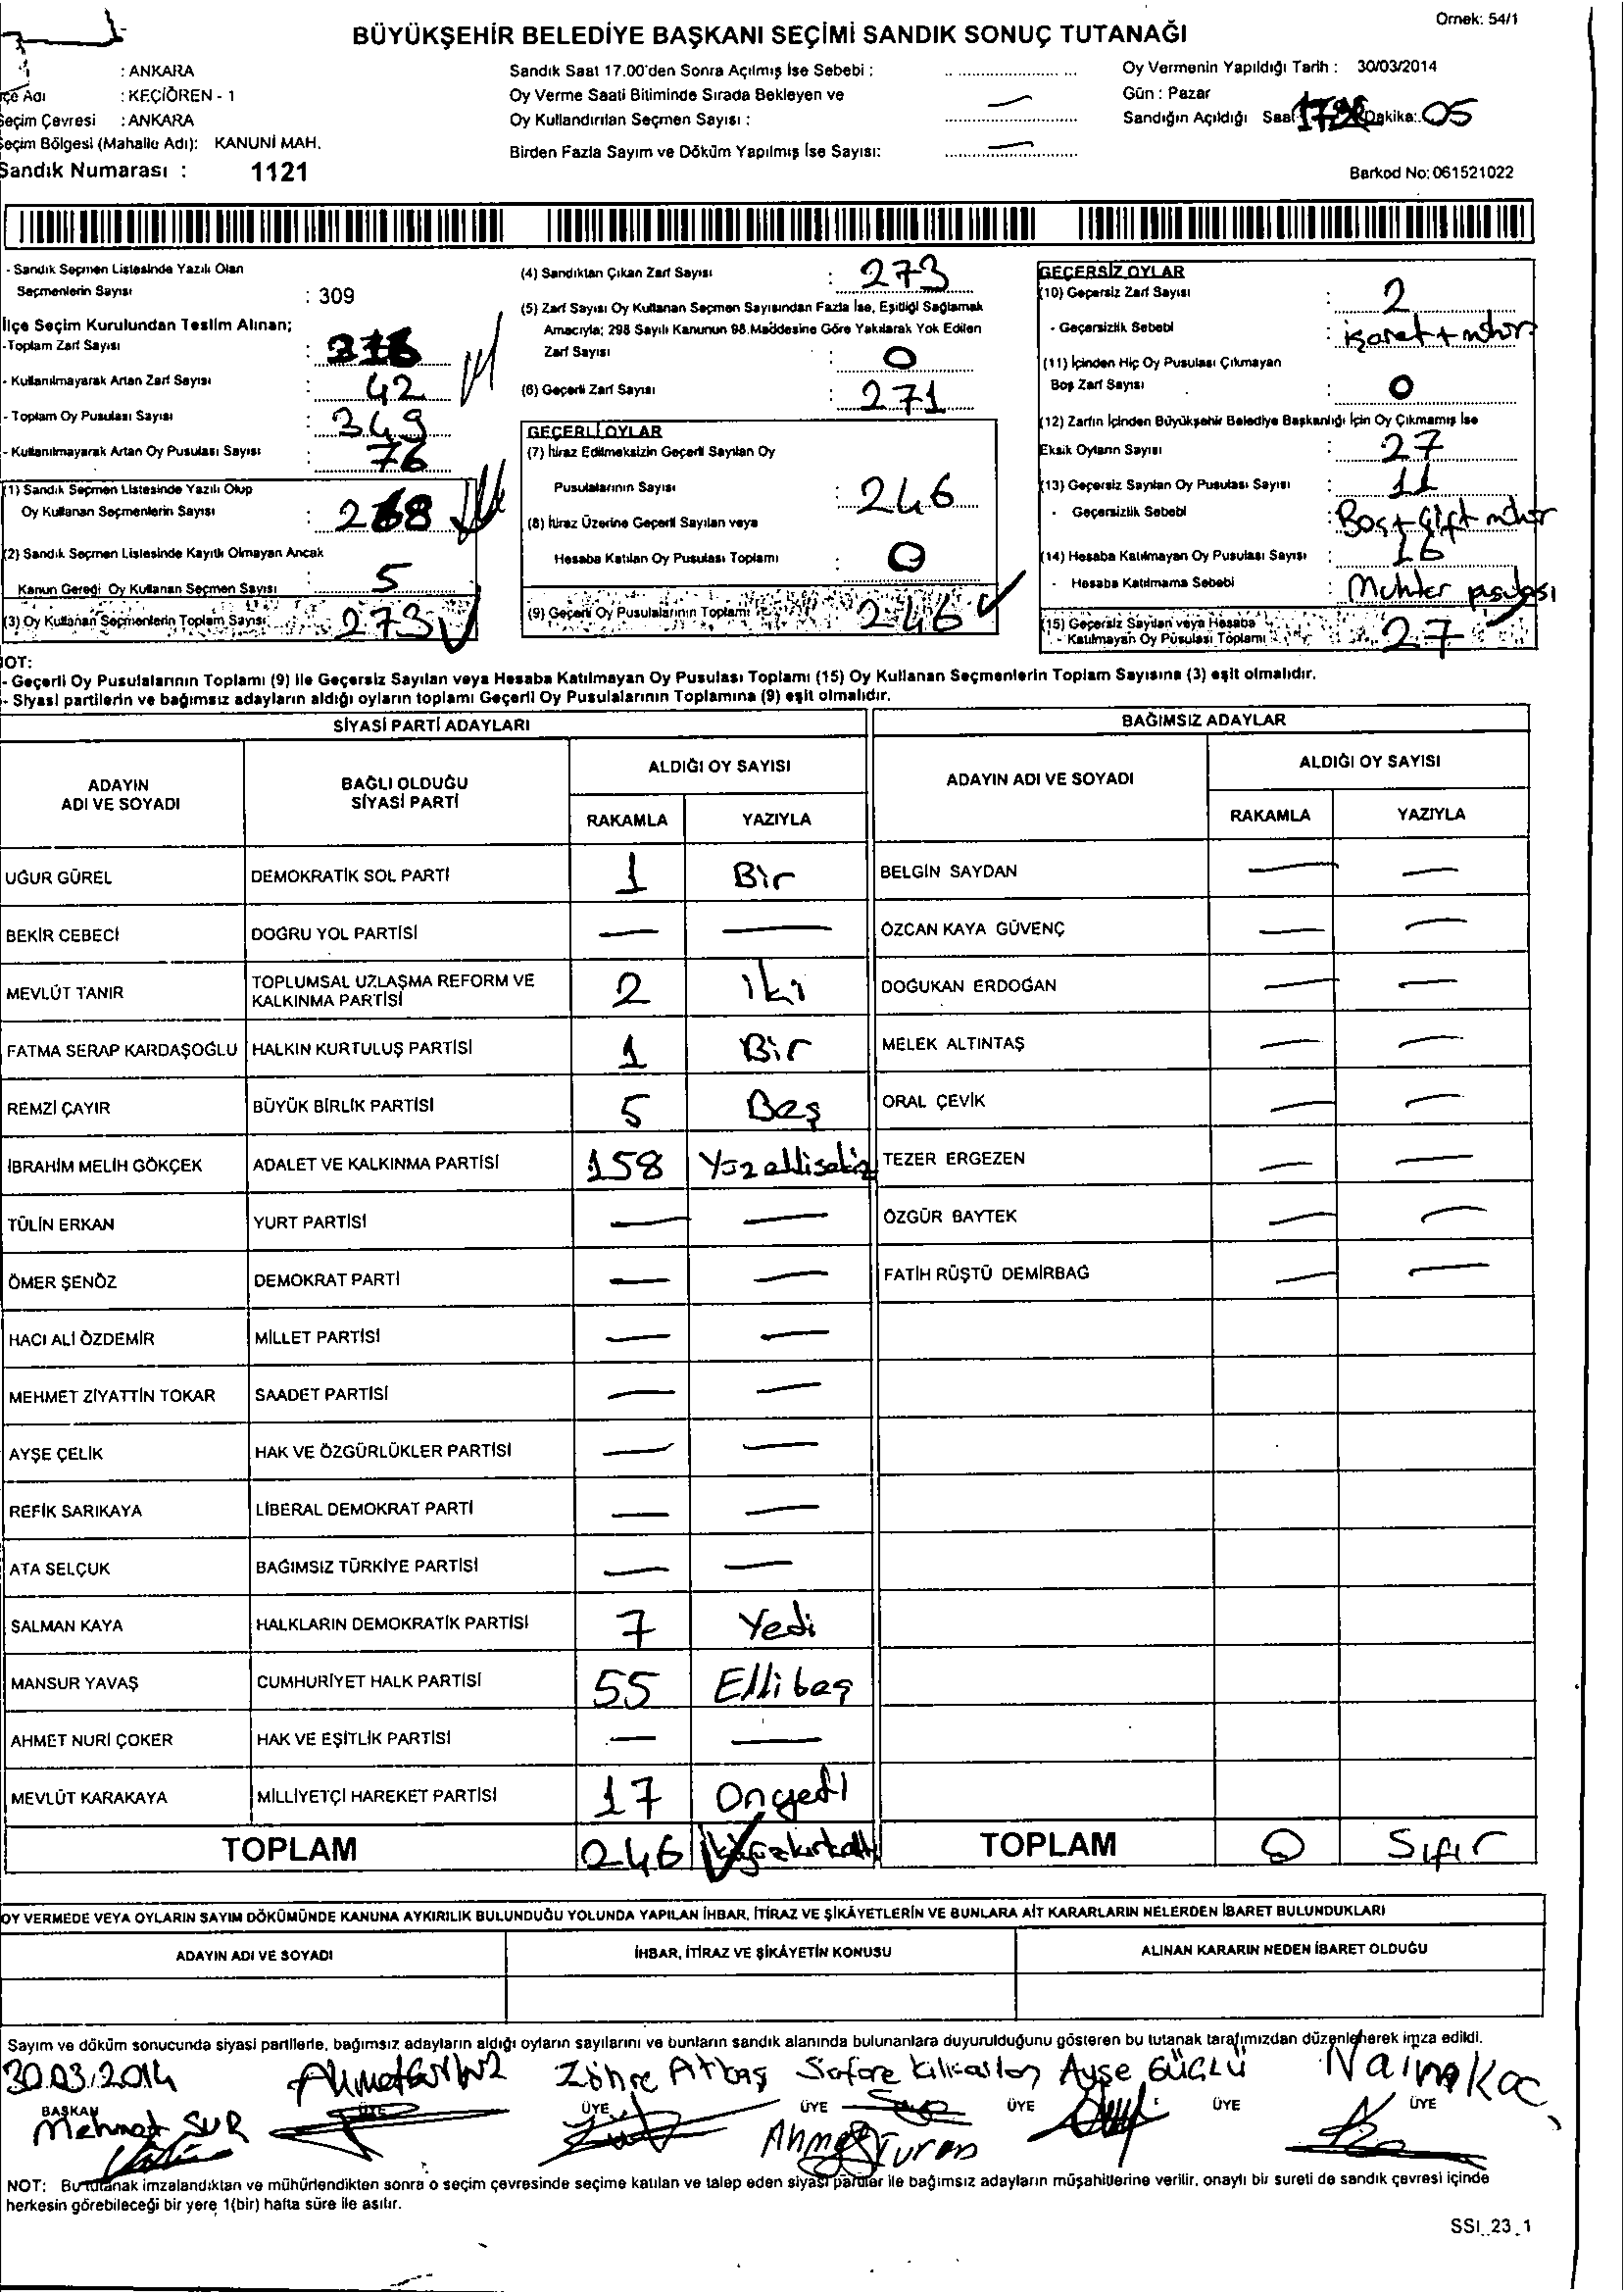 Örnek: 54/1
BÜYÜKŞEHİR BELEDİYE BAŞKANI SEÇİMİ SANDIK SONUÇ TUTANAĞI
: ANKARA
çe Adı : KEÇİÖREN - 1
Seçim Çevresi : ANKARA
Seçim Bölgesi (Mahalle Adı): KANUNİ MAH.
Sandık Numarası : 1121
Sandık Saat 17.00'den Sonra Açılmış İse Sebebi :
Oy Verme Saati Bitiminde Sırada Bekleyen ve
Oy Kullandırılan Seçmen Sayısı :
Birden Fazla Sayım ve Döküm Yapılmış İse Sayısı:
Oy Vermenin Yapıldığı Tarih : 30/03/2014
Gün : Pazar
Sandığın Açıldığı Saat Dakika: 05
Barkod No: 061521022
- Sandık Seçmen Listesinde Yazılı Olan
Seçmenlerin Sayısı : 309
İlçe Seçim Kurulundan Teslim Alınan;
-Toplam Zarf Sayısı :
- Kullanılmayarak Artan Zarf Sayısı : 42
- Toplam Oy Pusulası Sayısı : 349
- Kullanılmayarak Artan Oy Pusulası Sayısı : 76
(1) Sandık Seçmen Listesinde Yazılı Olup
Oy Kullanan Seçmenlerin Sayısı : 268
(2) Sandık Seçmen Listesinde Kayıtlı Olmayan Ancak
Kanun Gereği Oy Kullanan Seçmen Sayısı : 5
(3) Oy Kullanan Seçmenlerin Toplam Sayısı 273
(4) Sandıktan Çıkan Zarf Sayısı : 273
(5) Zarf Sayısı Oy Kullanan Seçmen Sayısından Fazla İse, Eşitliği Sağlamak
Amacıyla; 298 Sayılı Kanunun 98.Maddesine Göre Yakılarak Yok Edilen
Zarf Sayısı : 0
(6) Geçerli Zarf Sayısı : 271
GEÇERLİ OYLAR
(7) İtiraz Edilmeksizin Geçerli Sayılan Oy
Pusulalarının Sayısı : 246
(8) İtiraz Üzerine Geçerli Sayılan veya
Hesaba Katılan Oy Pusulası Toplamı : 0
(9) Geçerli Oy Pusulalarının Toplamı 246
GEÇERSİZ OYLAR
(10) Geçersiz Zarf Sayısı : 2
- Geçersizlik Sebebi : işaret + mühür
(11) İçinden Hiç Oy Pusulası Çıkmayan
Boş Zarf Sayısı : 0
(12) Zarfın İçinden Büyükşehir Belediye Başkanlığı İçin Oy Çıkmamış İse
Eksik Oyların Sayısı : 27
(13) Geçersiz Sayılan Oy Pusulası Sayısı : 11
- Geçersizlik Sebebi : Boş + Çift mühür
(14) Hesaba Katılmayan Oy Pusulası Sayısı : 16
- Hesaba Katılmama Sebebi : Muhtar pusulası
(15) Geçersiz Sayılan veya Hesaba
- Katılmayan Oy Pusulası Toplamı 27
NOT:
- Geçerli Oy Pusulalarının Toplamı (9) İle Geçersiz Sayılan veya Hesaba Katılmayan Oy Pusulası Toplamı (15) Oy Kullanan Seçmenlerin Toplam Sayısına (3) eşit olmalıdır.
- Siyasi partilerin ve bağımsız adayların aldığı oyların toplamı Geçerli Oy Pusulalarının Toplamına (9) eşit olmalıdır.
SİYASİ PARTİ ADAYLARI
BAĞIMSIZ ADAYLAR
ADAYIN ADI VE SOYADI
BAĞLI OLDUĞU SİYASİ PARTİ
ALDIĞI OY SAYISI
RAKAMLA YAZIYLA
ADAYIN ADI VE SOYADI
ALDIĞI OY SAYISI
RAKAMLA YAZIYLA
UĞUR GÜREL DEMOKRATİK SOL PARTİ 1 Bir BELGİN SAYDAN — —
BEKİR CEBECİ DOĞRU YOL PARTİSİ — — ÖZCAN KAYA GÜVENÇ — —
MEVLÜT TANIR TOPLUMSAL UZLAŞMA REFORM VE KALKINMA PARTİSİ 2 iki DOĞUKAN ERDOĞAN — —
FATMA SERAP KARDAŞOĞLU HALKIN KURTULUŞ PARTİSİ 1 Bir MELEK ALTINTAŞ — —
REMZİ ÇAYIR BÜYÜK BİRLİK PARTİSİ 5 Beş ORAL ÇEVİK — —
İBRAHİM MELİH GÖKÇEK ADALET VE KALKINMA PARTİSİ 158 Yüzellisekiz TEZER ERGEZEN — —
TÜLİN ERKAN YURT PARTİSİ — — ÖZGÜR BAYTEK — —
ÖMER ŞENÖZ DEMOKRAT PARTİ — — FATİH RÜŞTÜ DEMİRBAĞ — —
HACI ALİ ÖZDEMİR MİLLET PARTİSİ — —
MEHMET ZİYATTİN TOKAR SAADET PARTİSİ — —
AYŞE ÇELİK HAK VE ÖZGÜRLÜKLER PARTİSİ — —
REFİK SARIKAYA LİBERAL DEMOKRAT PARTİ — —
ATA SELÇUK BAĞIMSIZ TÜRKİYE PARTİSİ — —
SALMAN KAYA HALKLARIN DEMOKRATİK PARTİSİ 7 Yedi
MANSUR YAVAŞ CUMHURİYET HALK PARTİSİ 55 Ellibeş
AHMET NURİ ÇOKER HAK VE EŞİTLİK PARTİSİ — —
MEVLÜT KARAKAYA MİLLİYETÇİ HAREKET PARTİSİ 17 Onyedi
TOPLAM 246 ikiyüzkırkaltı TOPLAM 0 Sıfır
OY VERMEDE VEYA OYLARIN SAYIM DÖKÜMÜNDE KANUNA AYKIRILIK BULUNDUĞU YOLUNDA YAPILAN İHBAR, İTİRAZ VE ŞİKÂYETLERİN VE BUNLARA AİT KARARLARIN NELERDEN İBARET BULUNDUKLARI
ADAYIN ADI VE SOYADI İHBAR, İTİRAZ VE ŞİKÂYETİN KONUSU ALINAN KARARIN NEDEN İBARET OLDUĞU
Sayım ve döküm sonucunda siyasi partilerle, bağımsız adayların aldığı oyların sayılarını ve bunların sandık alanında bulunanlara duyurulduğunu gösteren bu tutanak tarafımızdan düzenlenerek imza edildi.
30.03.2014 Zöhre Akbaş Ayşe GÜÇLÜ Naime Koç
BAŞKAN ÜYE ÜYE ÜYE ÜYE ÜYE ÜYE
Mehmet SUR Ahmet Turan
NOT: Bu tutanak imzalandıktan ve mühürlendikten sonra o seçim çevresinde seçime katılan ve talep eden siyasi partiler ile bağımsız adayların müşahitlerine verilir, onaylı bir sureti de sandık çevresi içinde
herkesin görebileceği bir yere 1(bir) hafta süre ile asılır.
SSI_23_1